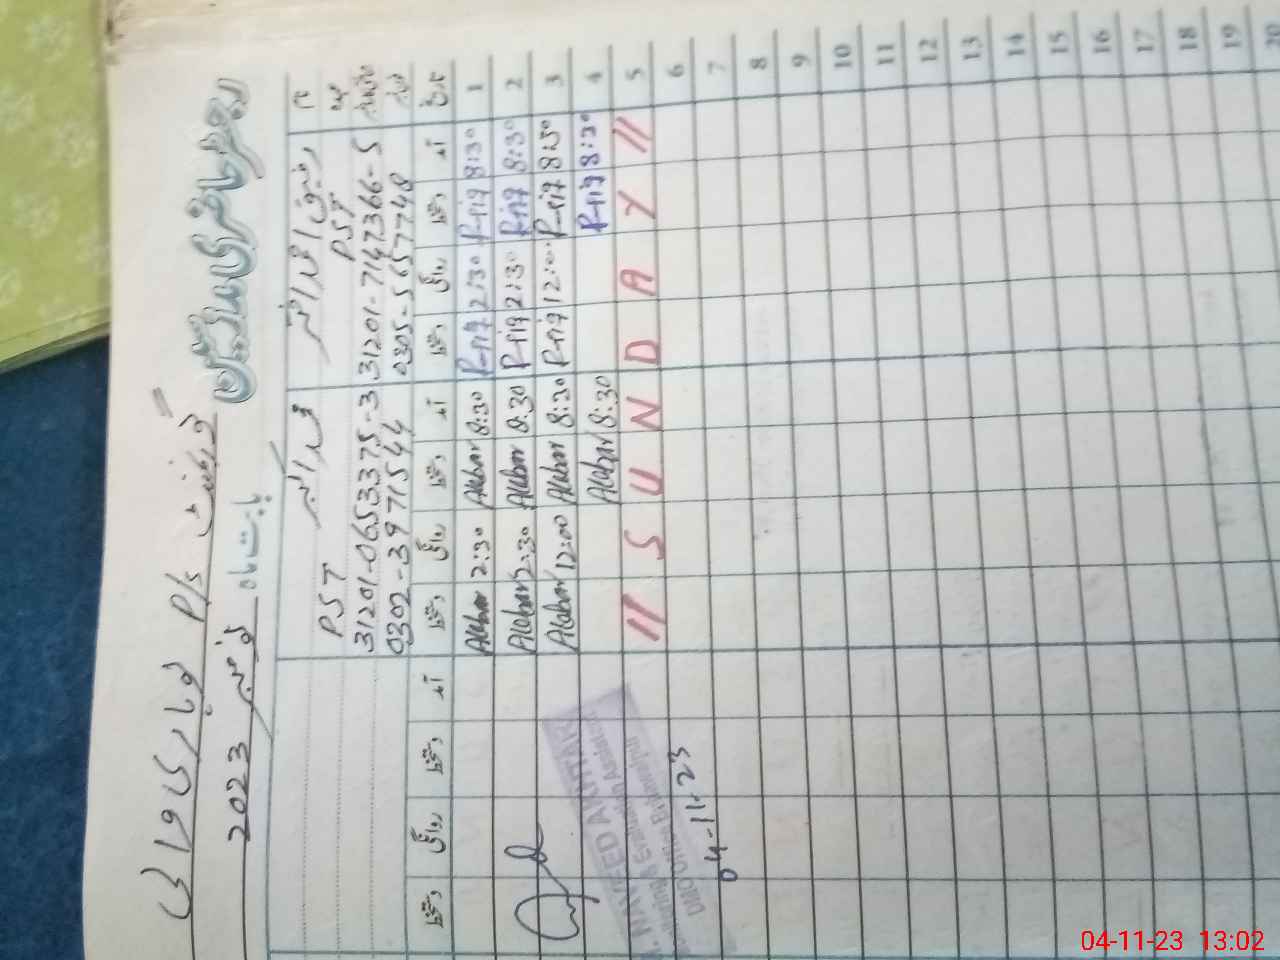 گورنمنٹ P/s
رجسٹر حاضری مدرسین
بابت ماہ نومبر 2023
نام
محمد اکبر
عہدہ PST PST
31201-7147366-5 31201-0653375-3
0305-5657748 0302-3971544
تاریخ آمد دستخط روانگی دستخط آمد دستخط روانگی دستخط آمد دستخط روانگی دستخط
1 8:30 Rafiq 2:30 Rafiq 8:30 Akbar 2:30 Akbar
2 8:30 Rafiq 2:30 Rafiq 8:30 Akbar 2:30 Akbar
3 8:30 Rafiq 12:00 Rafiq 8:30 Akbar 12:00 Akbar
4 8:30 Rafiq 8:30 Akbar
5 // Y A D N U S //
6
7
8
9
10
11
12
13
14
15
16
17
18
19
20
NAVEED AKHTAR
Monitoring & Evaluation Assistant
Bahawalpur
04-11-23
04-11-23 13:02